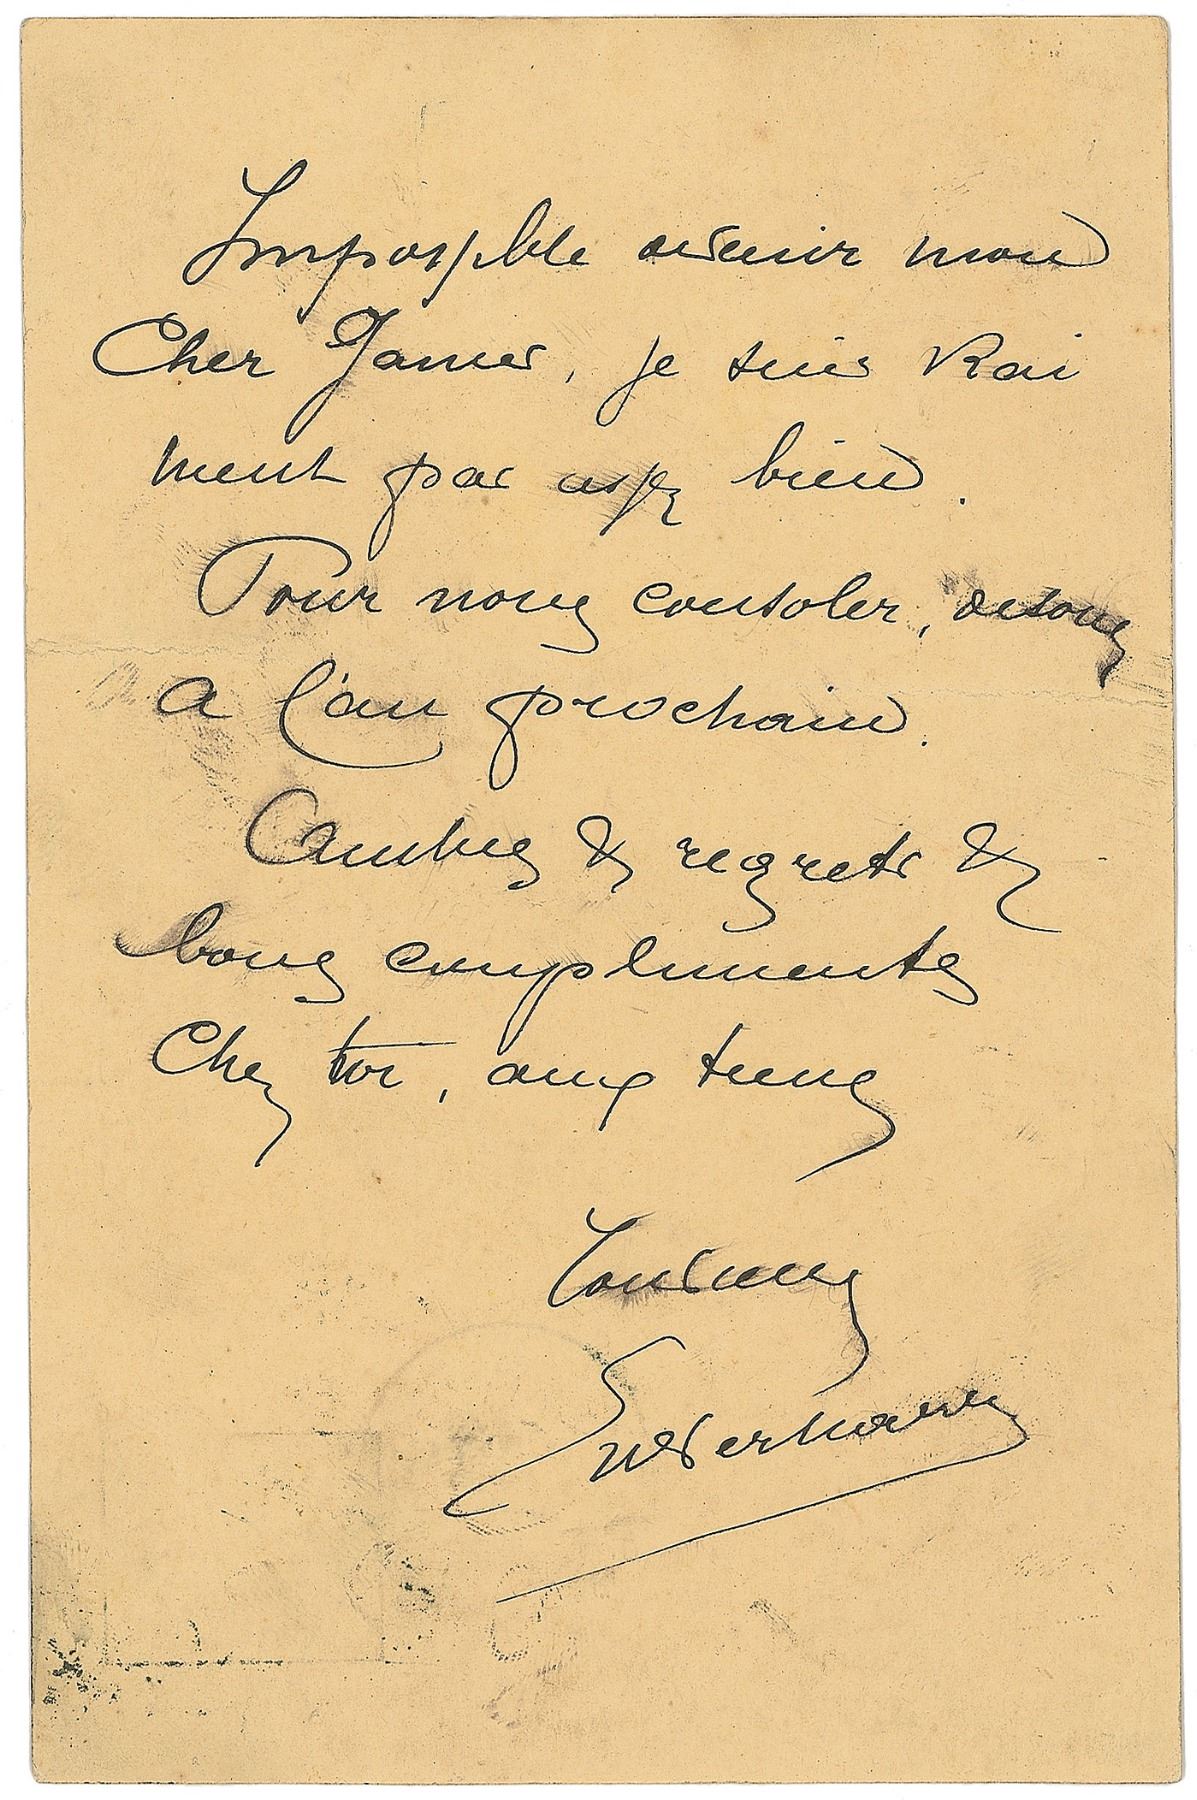 Impossible de venir mon
Cher James, je suis vrai
ment pas assez bien.
Pour nous consoler, disons
a l'an prochain.
Amitiés & regrets &
bons compliments
Chez toi, aux tiens
Verhaeren